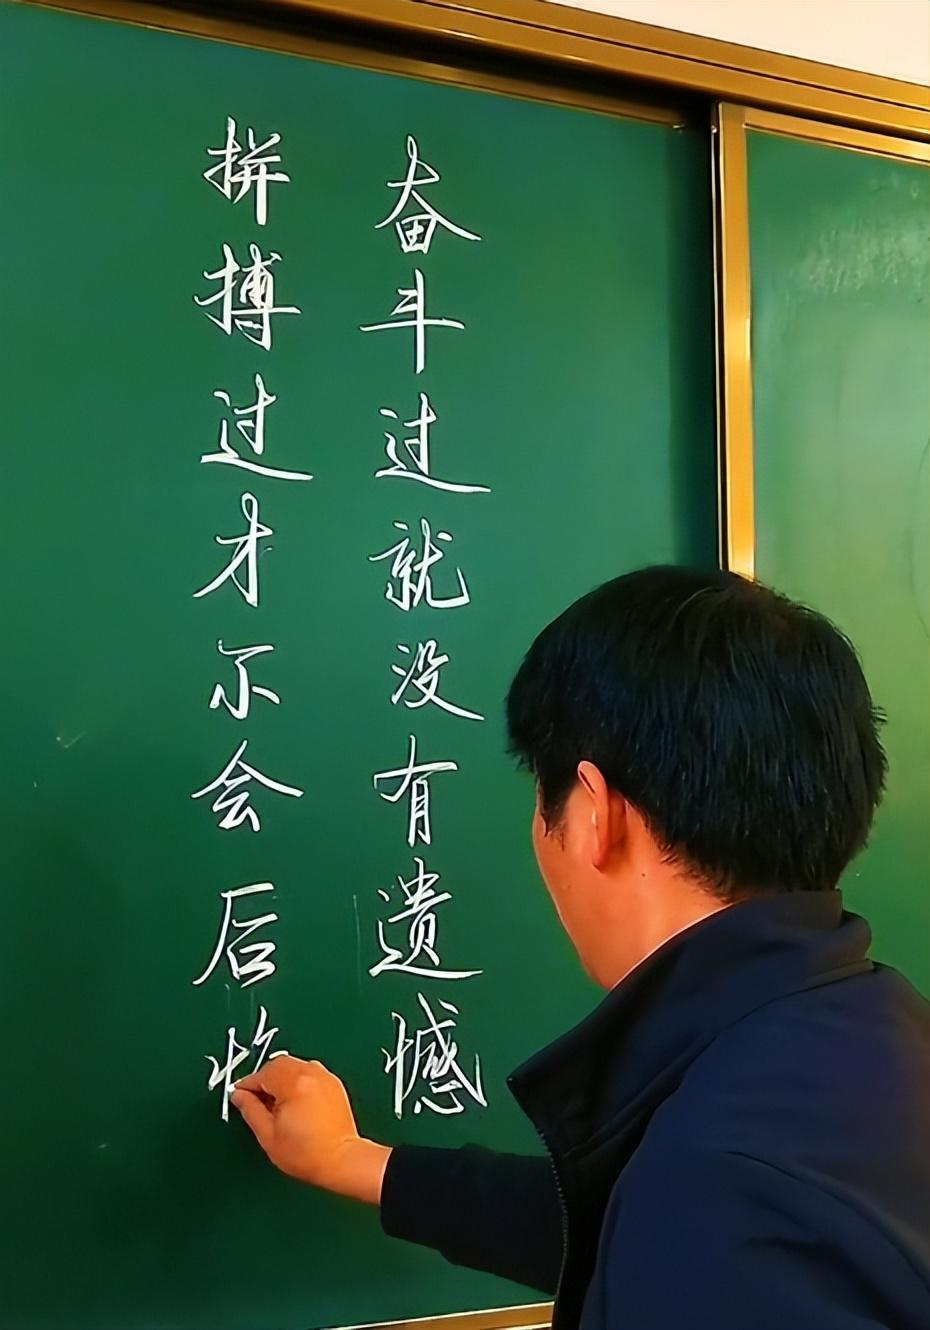 奋斗过就没有遗憾
拼搏过才不会后悔